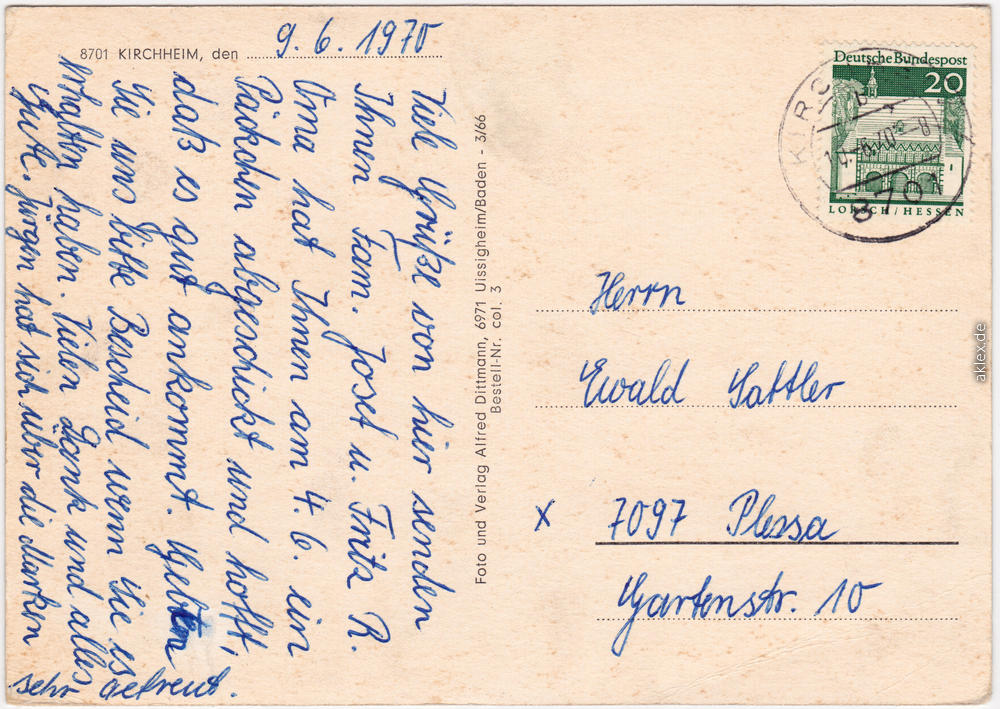 8701 KIRCHHEIM, den 9. 6. 1970
Viele Grüße von hier senden
Ihnen Fam. Josef u. Fritz R.
Oma hat Ihnen am 4. 6. ein
Päckchen abgeschickt und hofft,
daß es gut ankommt. Geben
Sie uns bitte Bescheid wenn Sie es
erhalten haben. Vielen Dank und alles
Gute. Jürgen hat sich über die Marken
sehr gefreut.
Foto und Verlag Alfred Dittmann, 6971 Uissigheim/Baden - 3/66
Bestell-Nr. col. 3
Deutsche Bundespost
20
LORSCH/HESSEN
8701
Herrn
Ewald Sattler
x 7097 Plessa
Gartenstr. 10
aklex.de